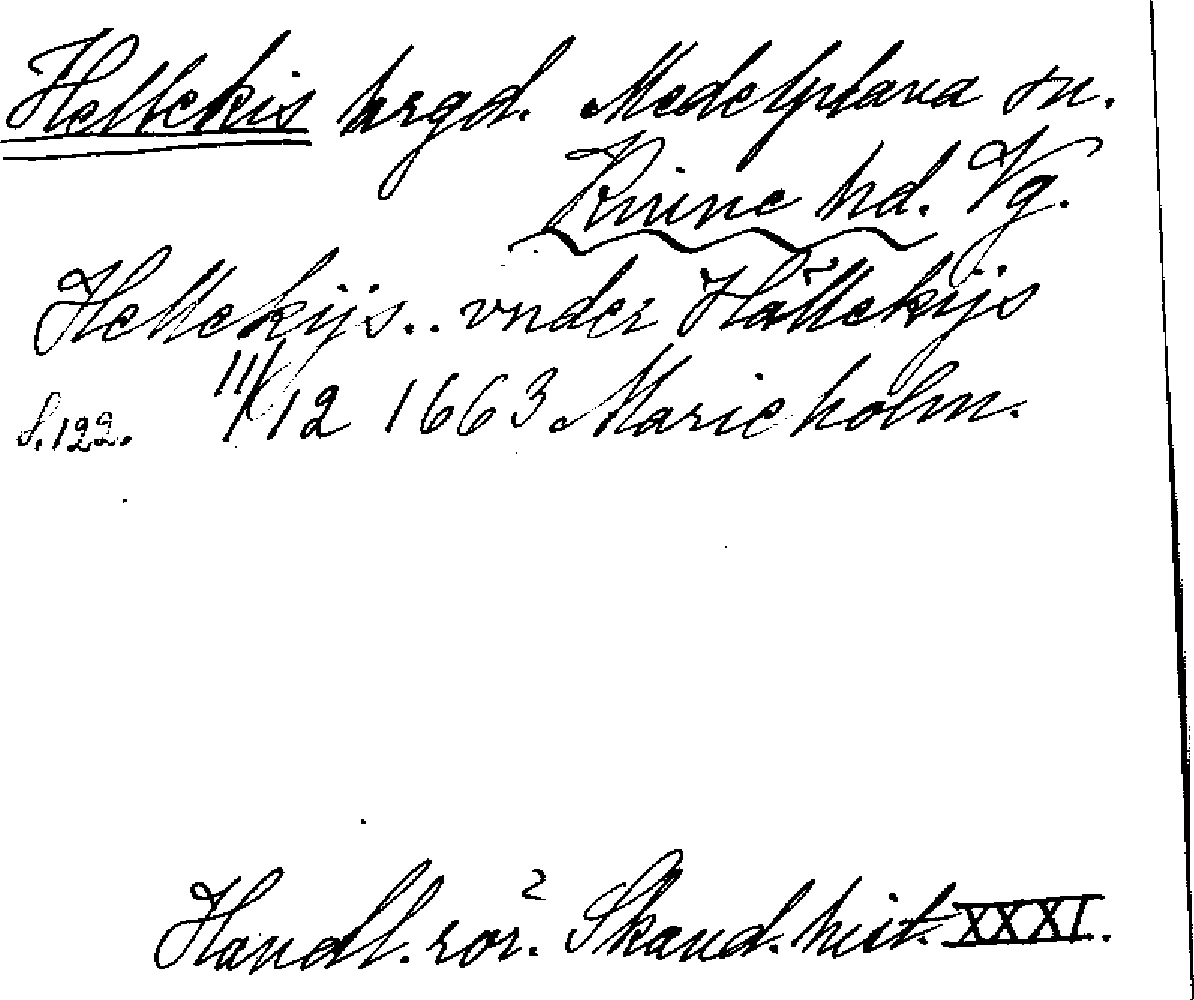 Hellekis hrgd. Medelplana sn.
Kinne hd. Vg.
Hellekijs.. vnder Hällekijs
S. 122. 11/12 1663 Marieholm.
Handl. rör. Skand. hist. XXXI.